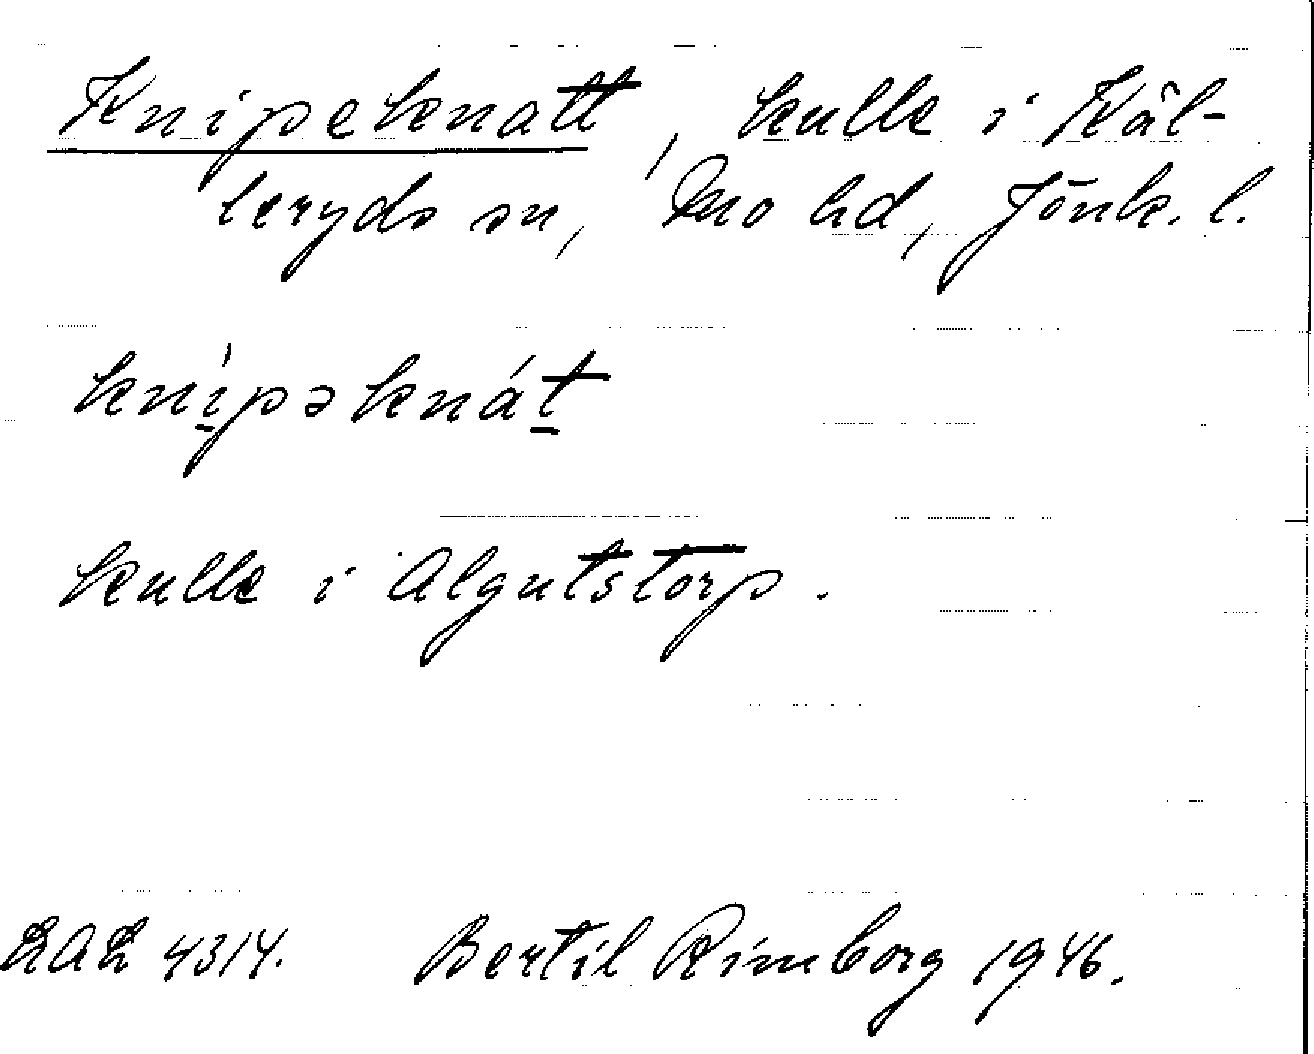 Knipeknatt, kulle i Käl-
leryds sn, Mo hd, Jönk. l.
kni̲pəknát̲
kulle i Algutstorp.
LAL 4314. Bertil Rimborg 1946.